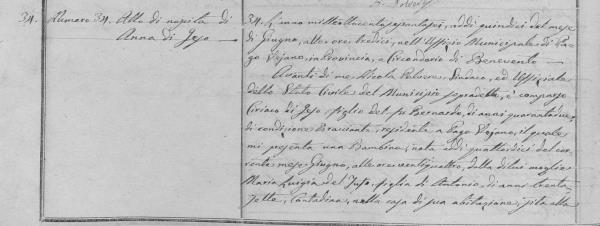 34. Numero 34. Atto di nascita di
Anna di Jeso
34. L'anno milleottocentosessantasei, addì quindici del mese
di Giugno, alle ore tredici, nell'Uffizio Municipale di Pa-
go Vejano, in Provincia, e Circondario di Benevento
Avanti di me, Nicola Polvere, Sindaco, ed Uffiziale
dello Stato Civile del Municipio sopradetto, è comparso
Ciriaco di Jeso figlio del fu Bernardo, di anni quarantadue,
di condizione Bracciante, residente a Pago Vejano, il quale
mi presenta una Bambina, nata addì quattordici del cor-
rente mese Giugno, alle ore ventiquattro, dalla di lui moglie
Maria Luigia del Juso, figlia di Antonio, di anni trenta-
sette, Contadina, nella casa di sua abitazione, sita alla